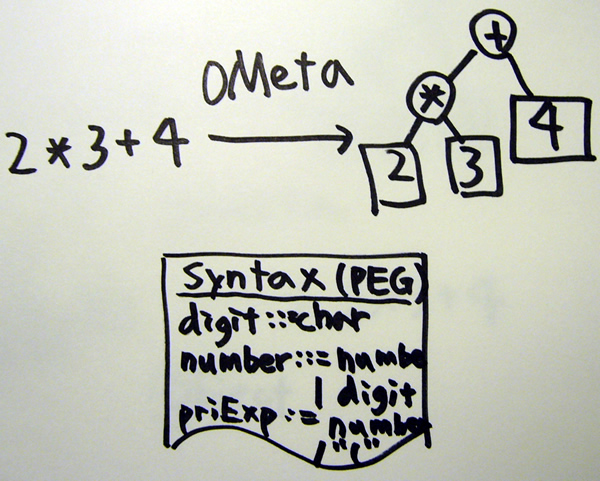 OMeta
2*3+4
+
*
4
2 3
Syntax (PEG)
digit::=char
number::= numbe
| digit
priExp:= number
| "("